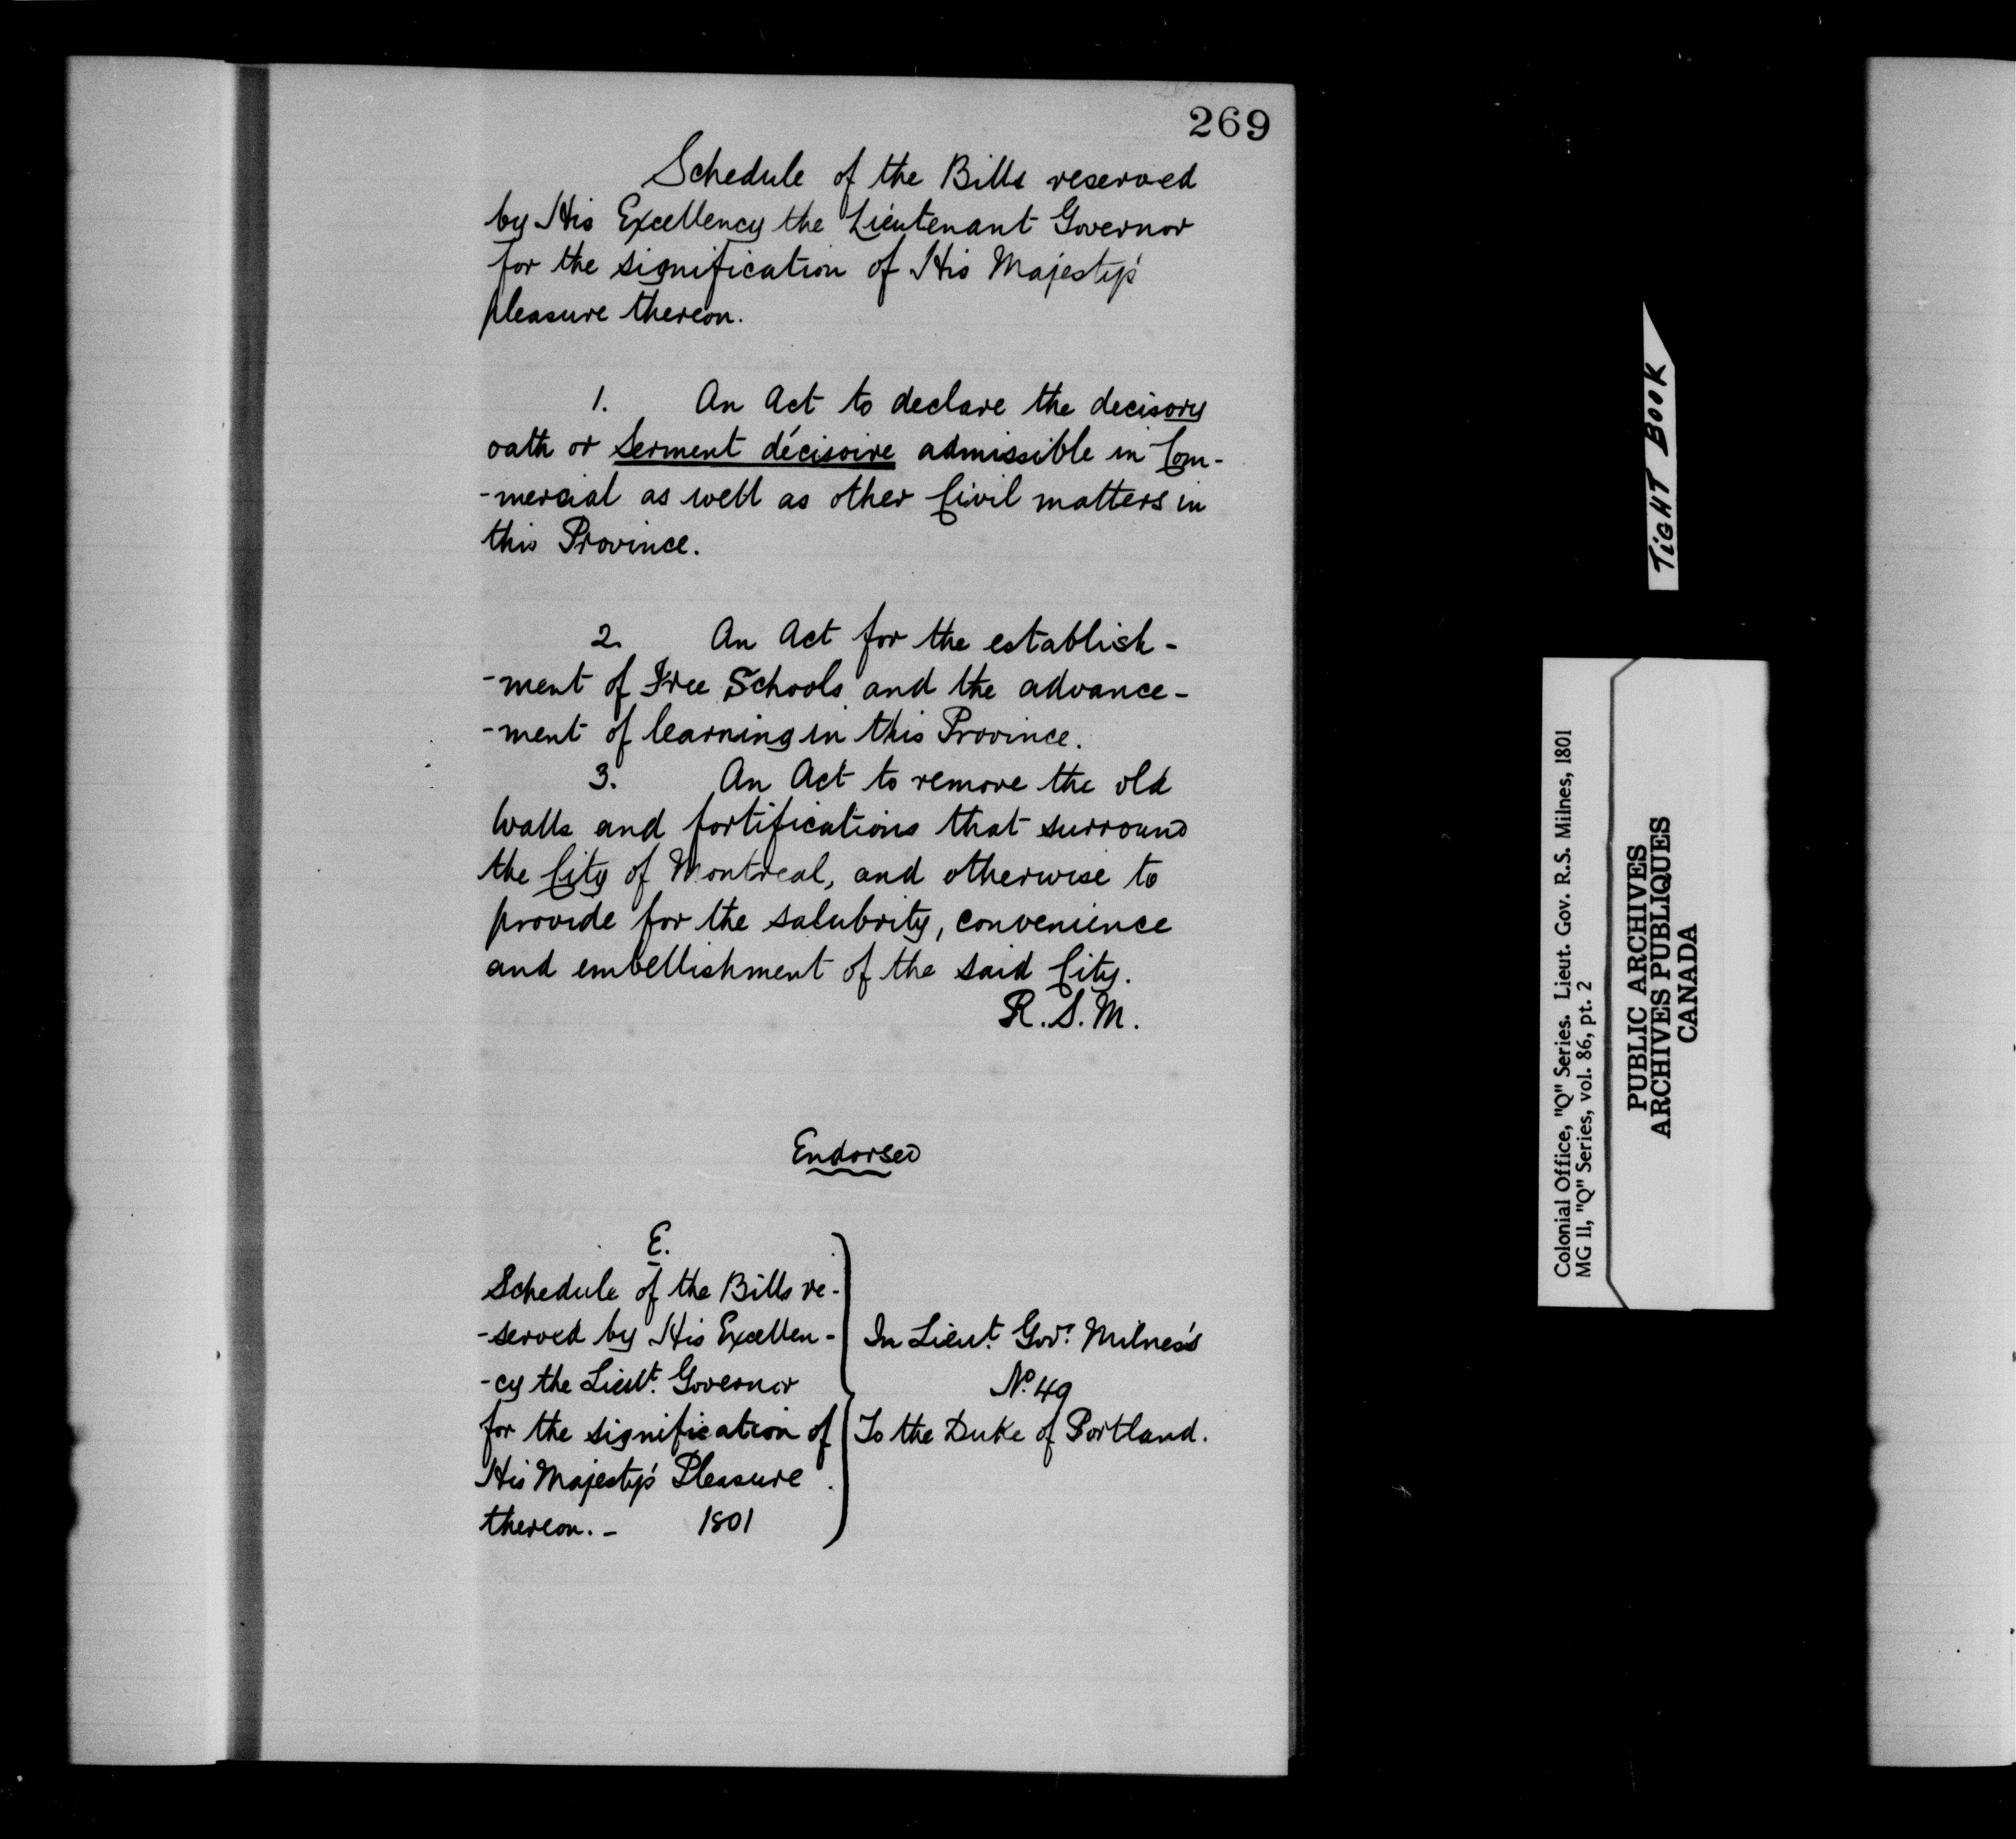 269
Schedule of the Bills reserved
by His Excellency the Lieutenant Governor
for the signification of His Majesty's
pleasure thereon.
1. An Act to declare the decisory
oath or Serment décisoire admissible in Com-
-mercial as well as other Civil matters in
this Province.
2. An Act for the establish-
-ment of Free Schools and the advance-
-ment of learning in this Province.
3. An Act to remove the old
Walls and fortifications that surround
the City of Montreal, and otherwise to
provide for the salubrity, convenience
and embellishment of the said City.
R.S.M.
Endorsed
E.
Schedule of the Bills re-
-served by His Excellen-
-cy the Lieut. Governor
for the signification of
His Majesty's Pleasure
thereon. - 1801
In Lieut. Govr. Milnes's
No. 49
To the Duke of Portland.
TIGHT BOOK
Colonial Office, "Q" Series. Lieut. Gov. R.S. Milnes, 1801
MG 11, "Q" Series, vol. 86, pt. 2
PUBLIC ARCHIVES
ARCHIVES PUBLIQUES
CANADA